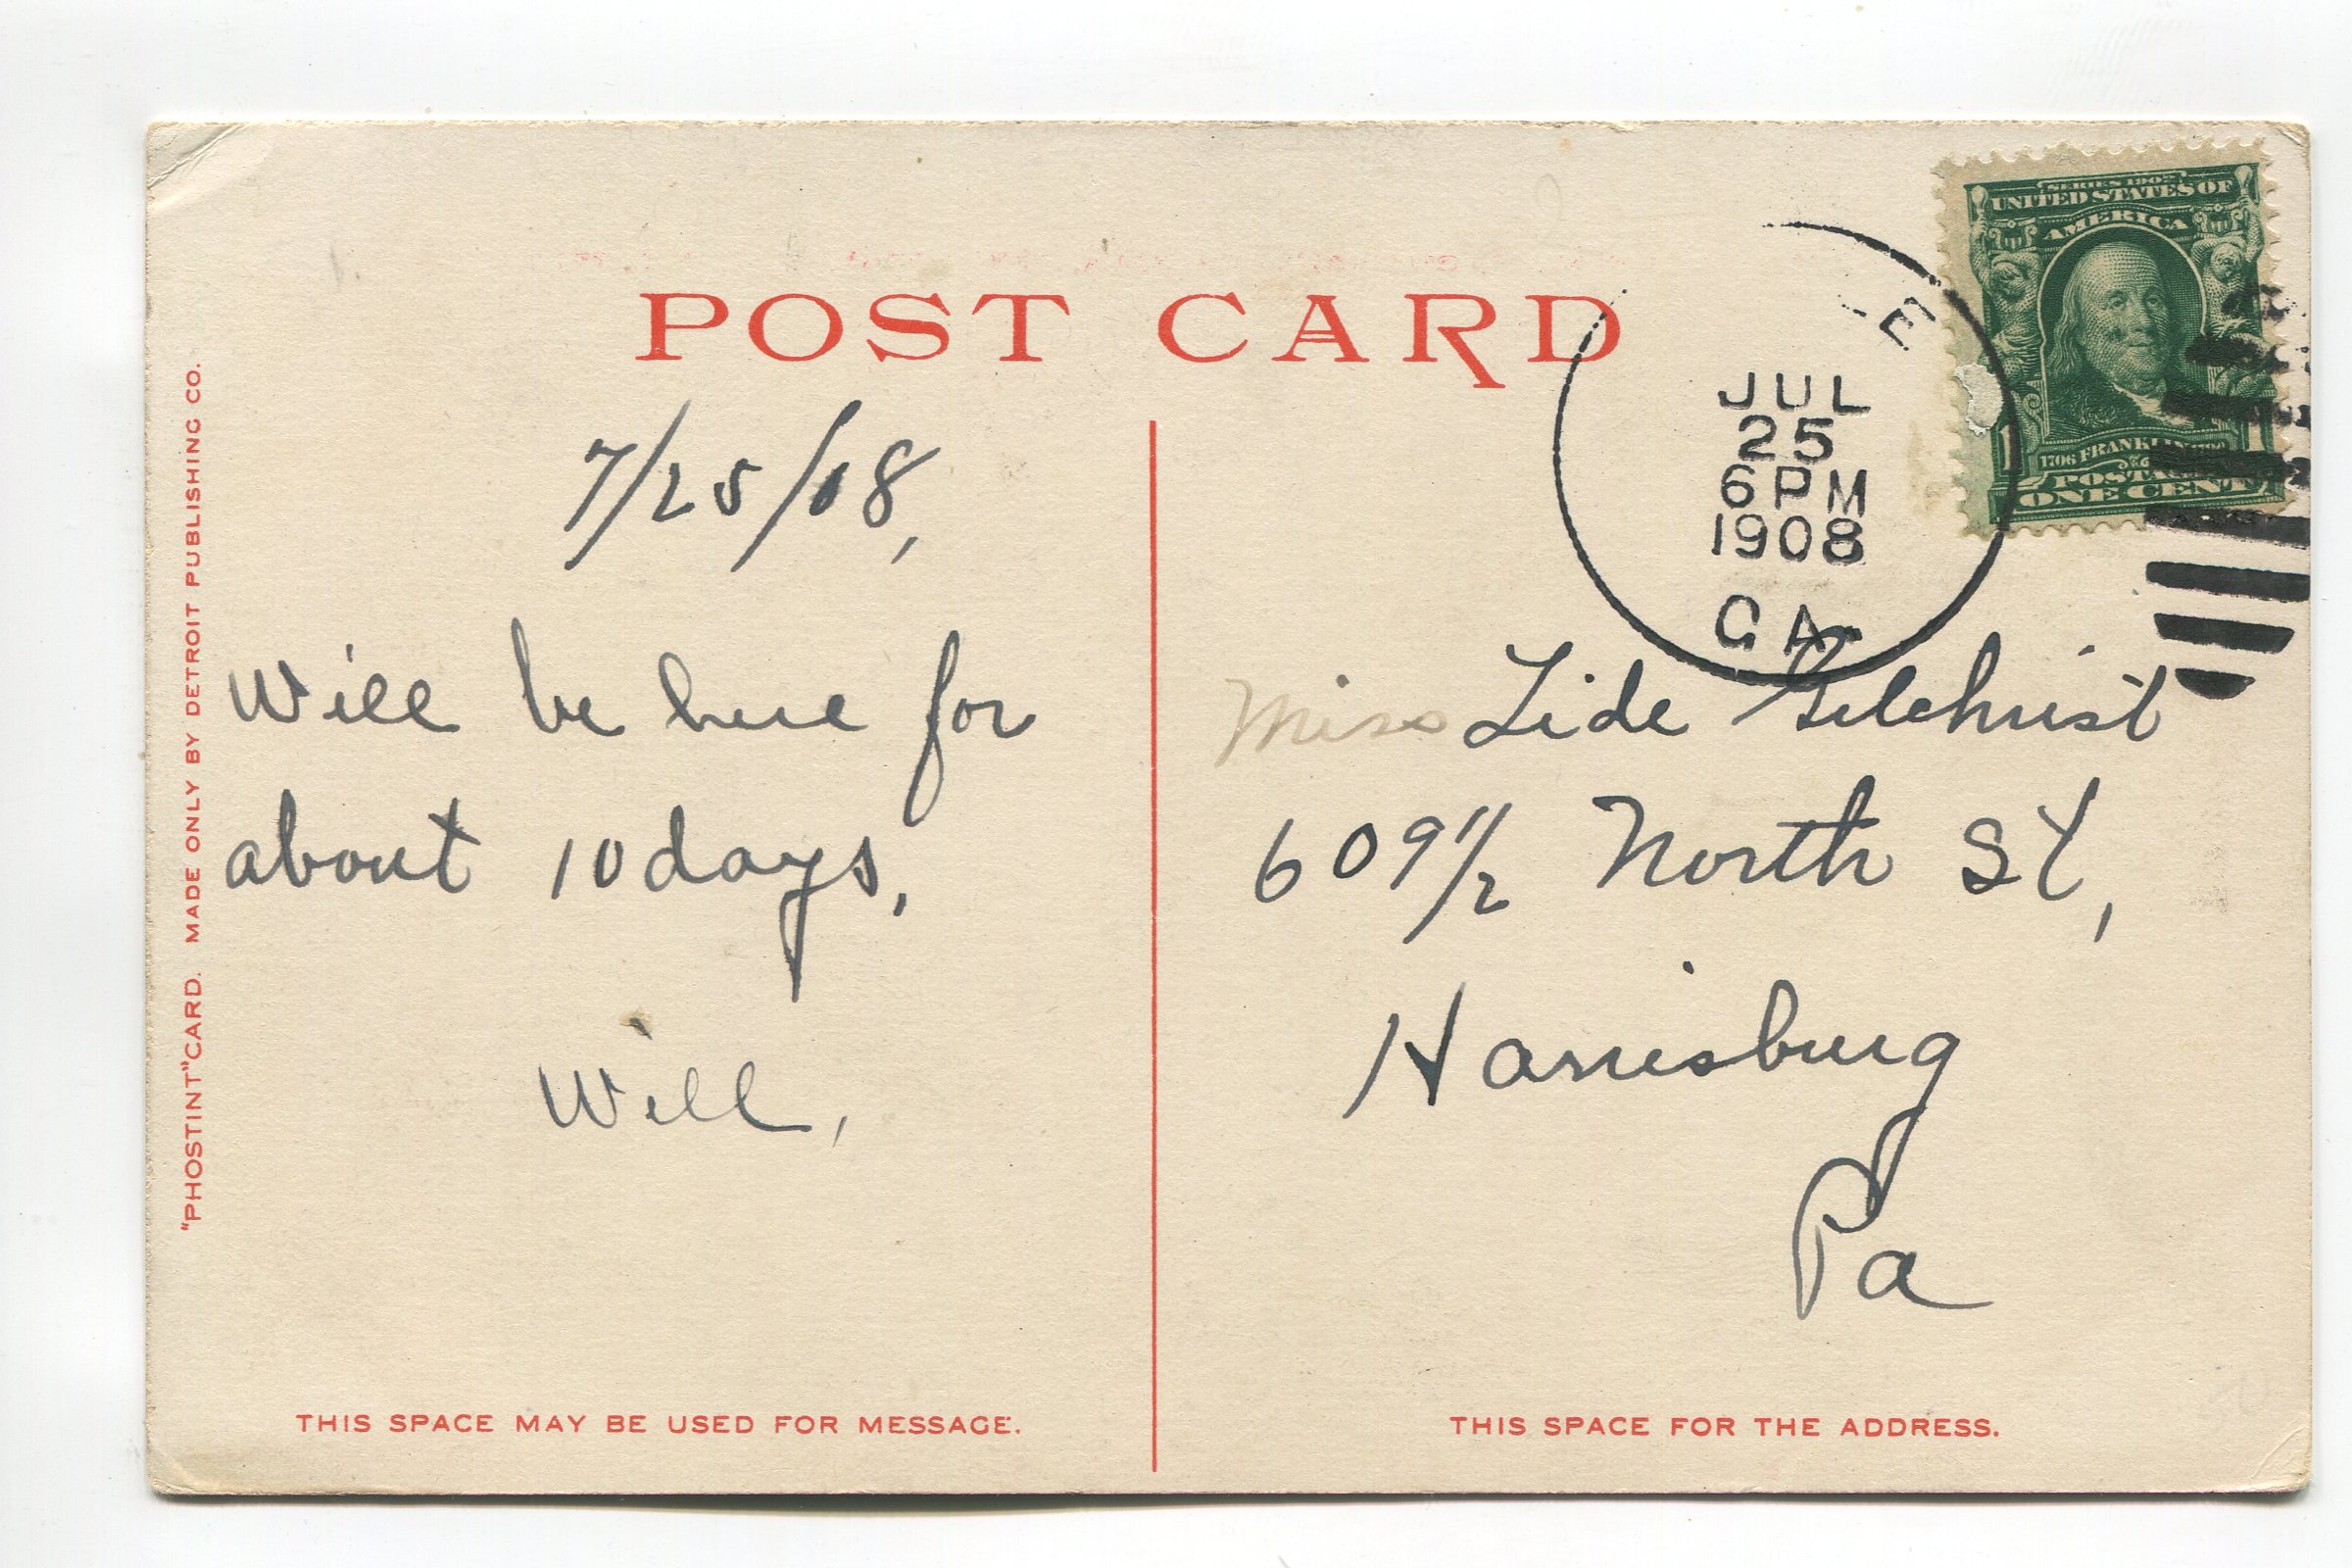 POST CARD
SERIES 1902
UNITED STATES OF
AMERICA
1706 FRANKLIN 1790
POSTAGE
ONE CENT
E
JUL
25
6 PM
1908
GA.
"PHOSTINT" CARD. MADE ONLY BY DETROIT PUBLISHING CO.
7/25/08,
Will be here for
about 10 days,
Will,
Miss Lide Gilchrist
609 1/2 North St,
Harrisburg
Pa
THIS SPACE MAY BE USED FOR MESSAGE.
THIS SPACE FOR THE ADDRESS.